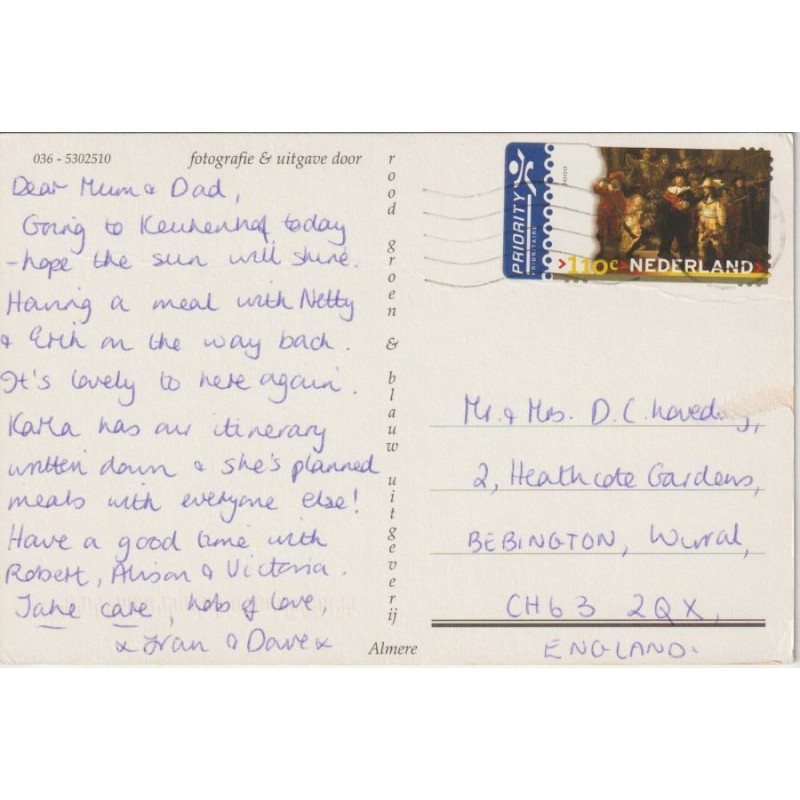 036 - 5302510
fotografie & uitgave door
rood groen & blauw uitgeverij
Almere
Dear Mum & Dad,
Going to Keukenhof today
- hope the sun will shine.
Having a meal with Netty
& Erik on the way back.
It's lovely to here again.
Karla has our itinerary
written down & she's planned
meals with everyone else!
Have a good time with
Robert, Alison & Victoria.
Take care, lots of love,
x Fran & Dave x
PRIORITY
PRIORITAIRE
2000
110c NEDERLAND
Mr. & Mrs. D.C.
2, Heathcote Gardens,
BEBINGTON, Wirral,
CH63 2QX,
ENGLAND.